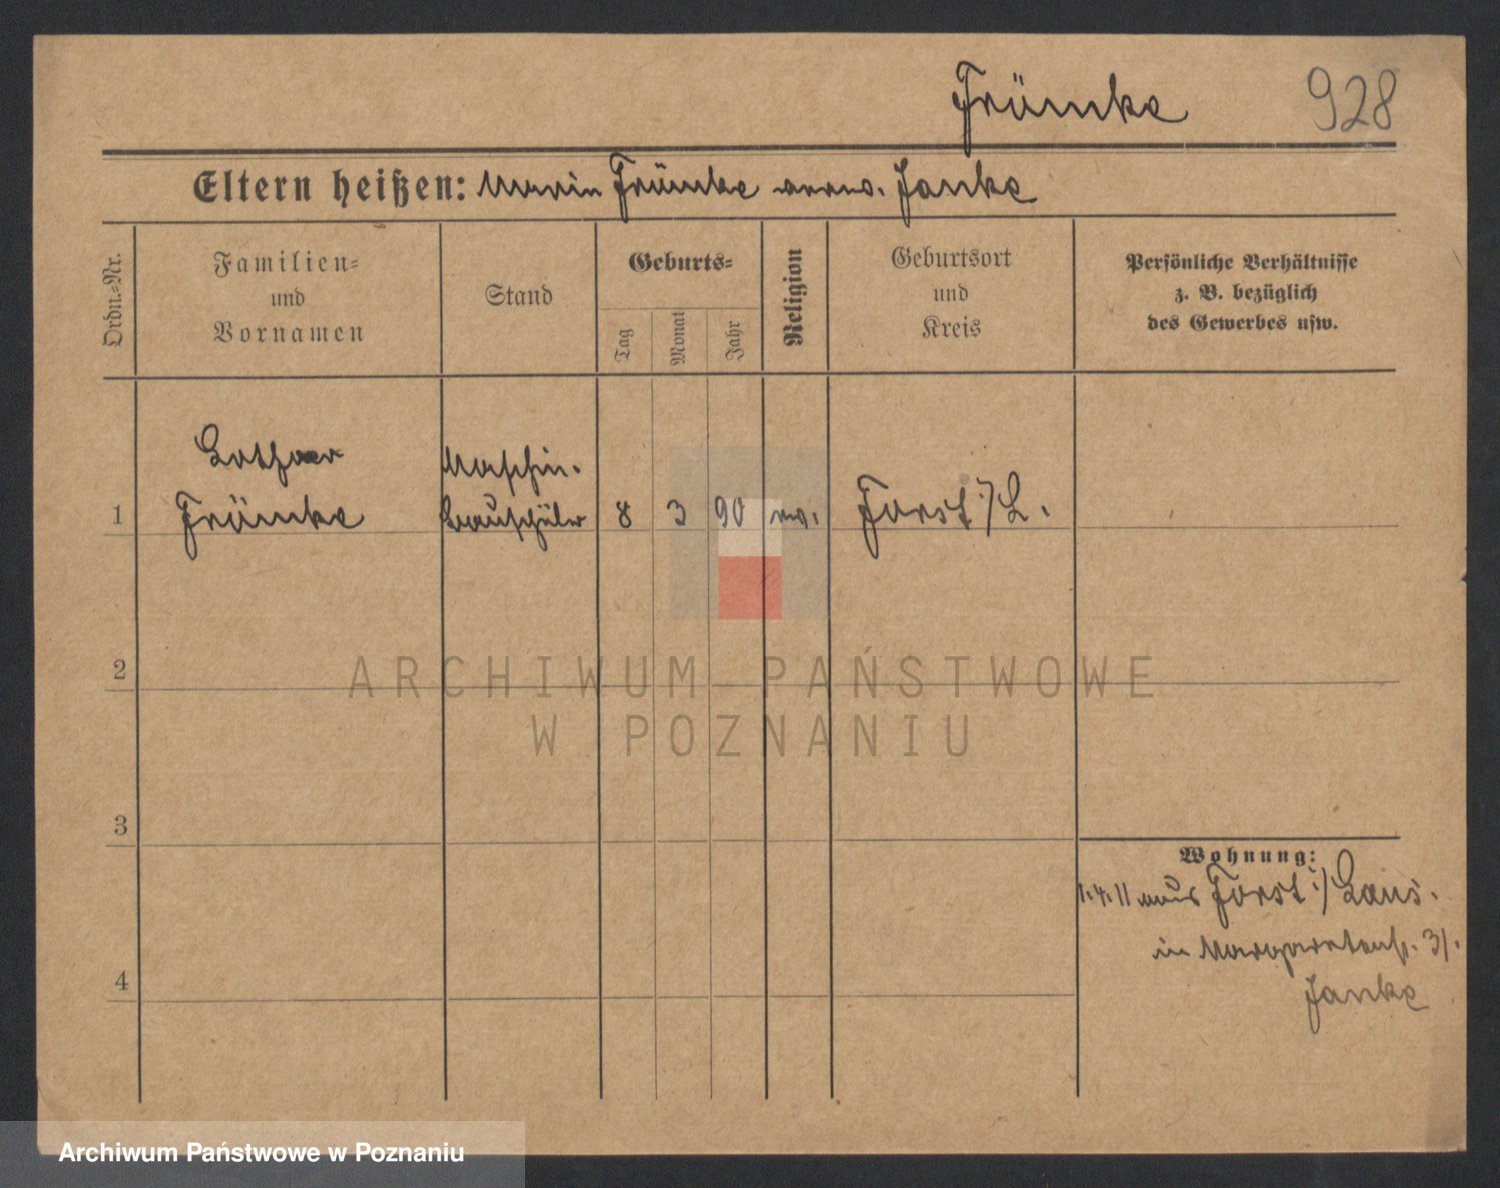 Frömke 928
Eltern heißen: Marie Frömke verw. Janke
Ordn.-Nr.
Familien-
und
Vornamen
Stand
Geburts-
Tag
Monat
Jahr
Religion
Geburtsort
und
Kreis
Persönliche Verhältnisse
z. B. bezüglich
des Gewerbes usw.
Lothar Maschin.
1 Frömke bauschüler 8 3 90 ev. Forst i/L.
2
ARCHIWUM PAŃSTWOWE
W POZNANIU
3
Wohnung:
1.4.11 aus Forst i/Laus.
4 in Margaretenstr. 31.
Janke
Archiwum Państwowe w Poznaniu